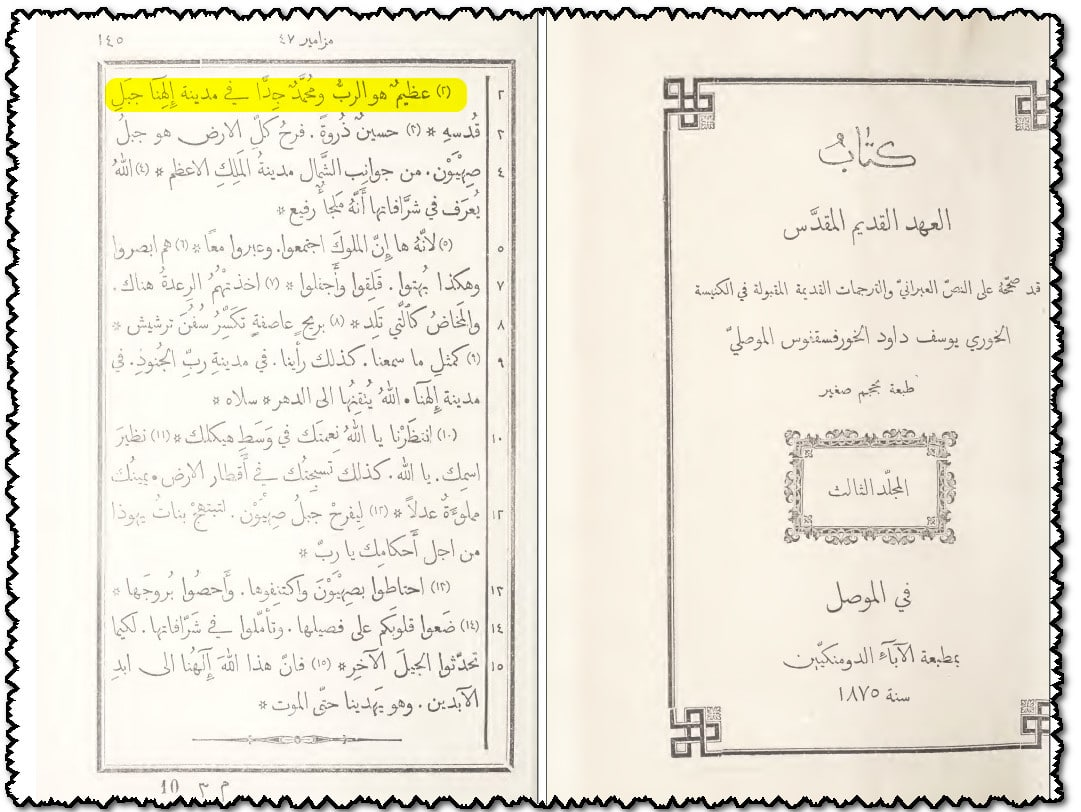 كتاب
العهد القديم المقدَّس
قد صحّحهُ على النصّ العبرانيّ والترجمات القديمة المقبولة في الكنيسة
الخوري يوسف داود الخورفسقفوس الموصليّ
طبعة بحجم صغير
المجلّد الثالث
في الموصل
بمطبعة الآباء الدومنكيّين
سنة ١٨٧٥
مزامير ٤٧ ١٤٥
٢ (٢) عظيمٌ هو الربُّ ومُحمَّدٌ جدًّا في مدينة إِلهنا جبلِ
٣ قُدسهِ * (٣) حسينٌ ذُروةً . فرحُ كلِّ الارض هو جبلُ
٤ صِهْيَوْن . من جوانب الشَّمال مدينةُ المَلِكِ الاعظم * (٤) اللهُ
يُعرَف في شرَّافاتها أَنَّهُ مَلجأٌ رفيع *
٥ (٥) لانَّهُ ها إِنَّ الملوكَ اجتمعوا . وعبروا معًا * (٦) هم ابصروا
٧ وهكذا بُهِتوا . قَلِقوا وأَجفلوا * (٧) اخذتهُمُ الرِعدةُ هناك .
٨ والمَخاضُ كالَّتي تَلِد * (٨) بريحٍ عاصفةٍ تكسِّرُ سُفُنَ ترشيش *
٩ (٩) كمثلِ ما سمعنا . كذلك رأينا . في مدينةِ ربِّ الجُنودِ . في
مدينة إِلهنا . اللهُ يُتقِنُها الى الدهر * سلاه *
١٠ (١٠) انتظَرْنا يا اللهُ نِعمتَك في وَسَطِ هيكلك * (١١) نظيرَ
اسمِك . يا الله . كذلك تسبيحتُك في أَقطار الارض . يمينُك
١٢ مملوءةٌ عدلاً * (١٢) لِيفرحْ جبلُ صِهْيَوْن . لتبتهجْ بناتُ يهوذا
من اجل أَحكامِك يا ربّ *
١٣ (١٣) احتاطوا بصِهْيَوْنَ واكتنِفوها . وأَحصُوا بُروجَها *
١٤ (١٤) ضَعوا قلوبَكم على فصيلها . وتأمَّلوا في شرَّافاتها . لكيما
١٥ تحدّثوا الجيلَ الآخِر * (١٥) فانَّ هذا اللهَ آلَهُنا الى ابدِ
الآبدين . وهو يَهدينا حتّى الموت *
م ٣ 10